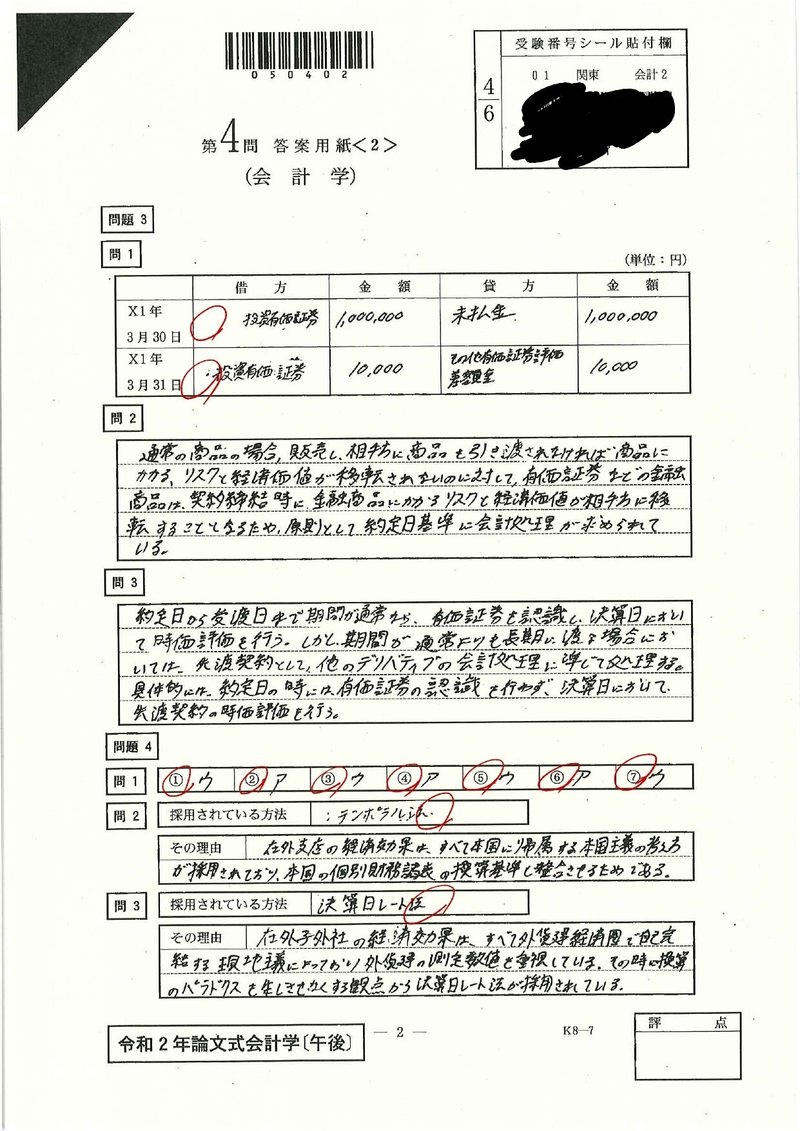 050402
受験番号シール貼付欄
4/6
01 関東 会計2
第4問 答案用紙<2>
(会計学)
問題 3
問 1
(単位:円)
借方 金額 貸方 金額
X1年 3月30日 投資有価証券 1,000,000 未払金 1,000,000
X1年 3月31日 投資有価証券 10,000 その他有価証券評価差額金 10,000
問 2
通常の商品の場合、販売し、相手方に商品を引き渡されなければ商品に
かかる、リスクと経済価値が移転されないのに対して、有価証券などの金融
商品は、契約締結時に、金融商品にかかるリスクと経済価値が相手方に移
転することとなるため、原則として約定日基準に会計処理が求められて
いる。
問 3
約定日から受渡日まで期間が通常なら、有価証券を認識し、決算日におい
て時価評価を行う。しかし、期間が通常よりも長期に渡る場合にお
いては、先渡契約として、他のデリバティブの会計処理に準じて処理する。
具体的には、約定日の時には、有価証券の認識を行わず、決算日において、
先渡契約の時価評価を行う。
問題 4
問 1 ①ウ ②ア ③ウ ④ア ⑤ウ ⑥ア ⑦ウ
問 2 採用されている方法 テンポラル法
その理由 在外支店の経済効果は、すべて本国に帰属する本国主義の考え方
が採用されており、本国の個別財務諸表の換算基準と整合させるためである。
問 3 採用されている方法 決算日レート法
その理由 在外子外社の経済効果は、すべて外貨建経済圏で自己完
結する現地主義によっており外貨建の測定数値を重視している。その時に換算
のパラドクスを生じさせなくする観点から決算日レート法が採用されている。
令和2年論文式会計学〔午後〕
— 2 —
K8—7
評点